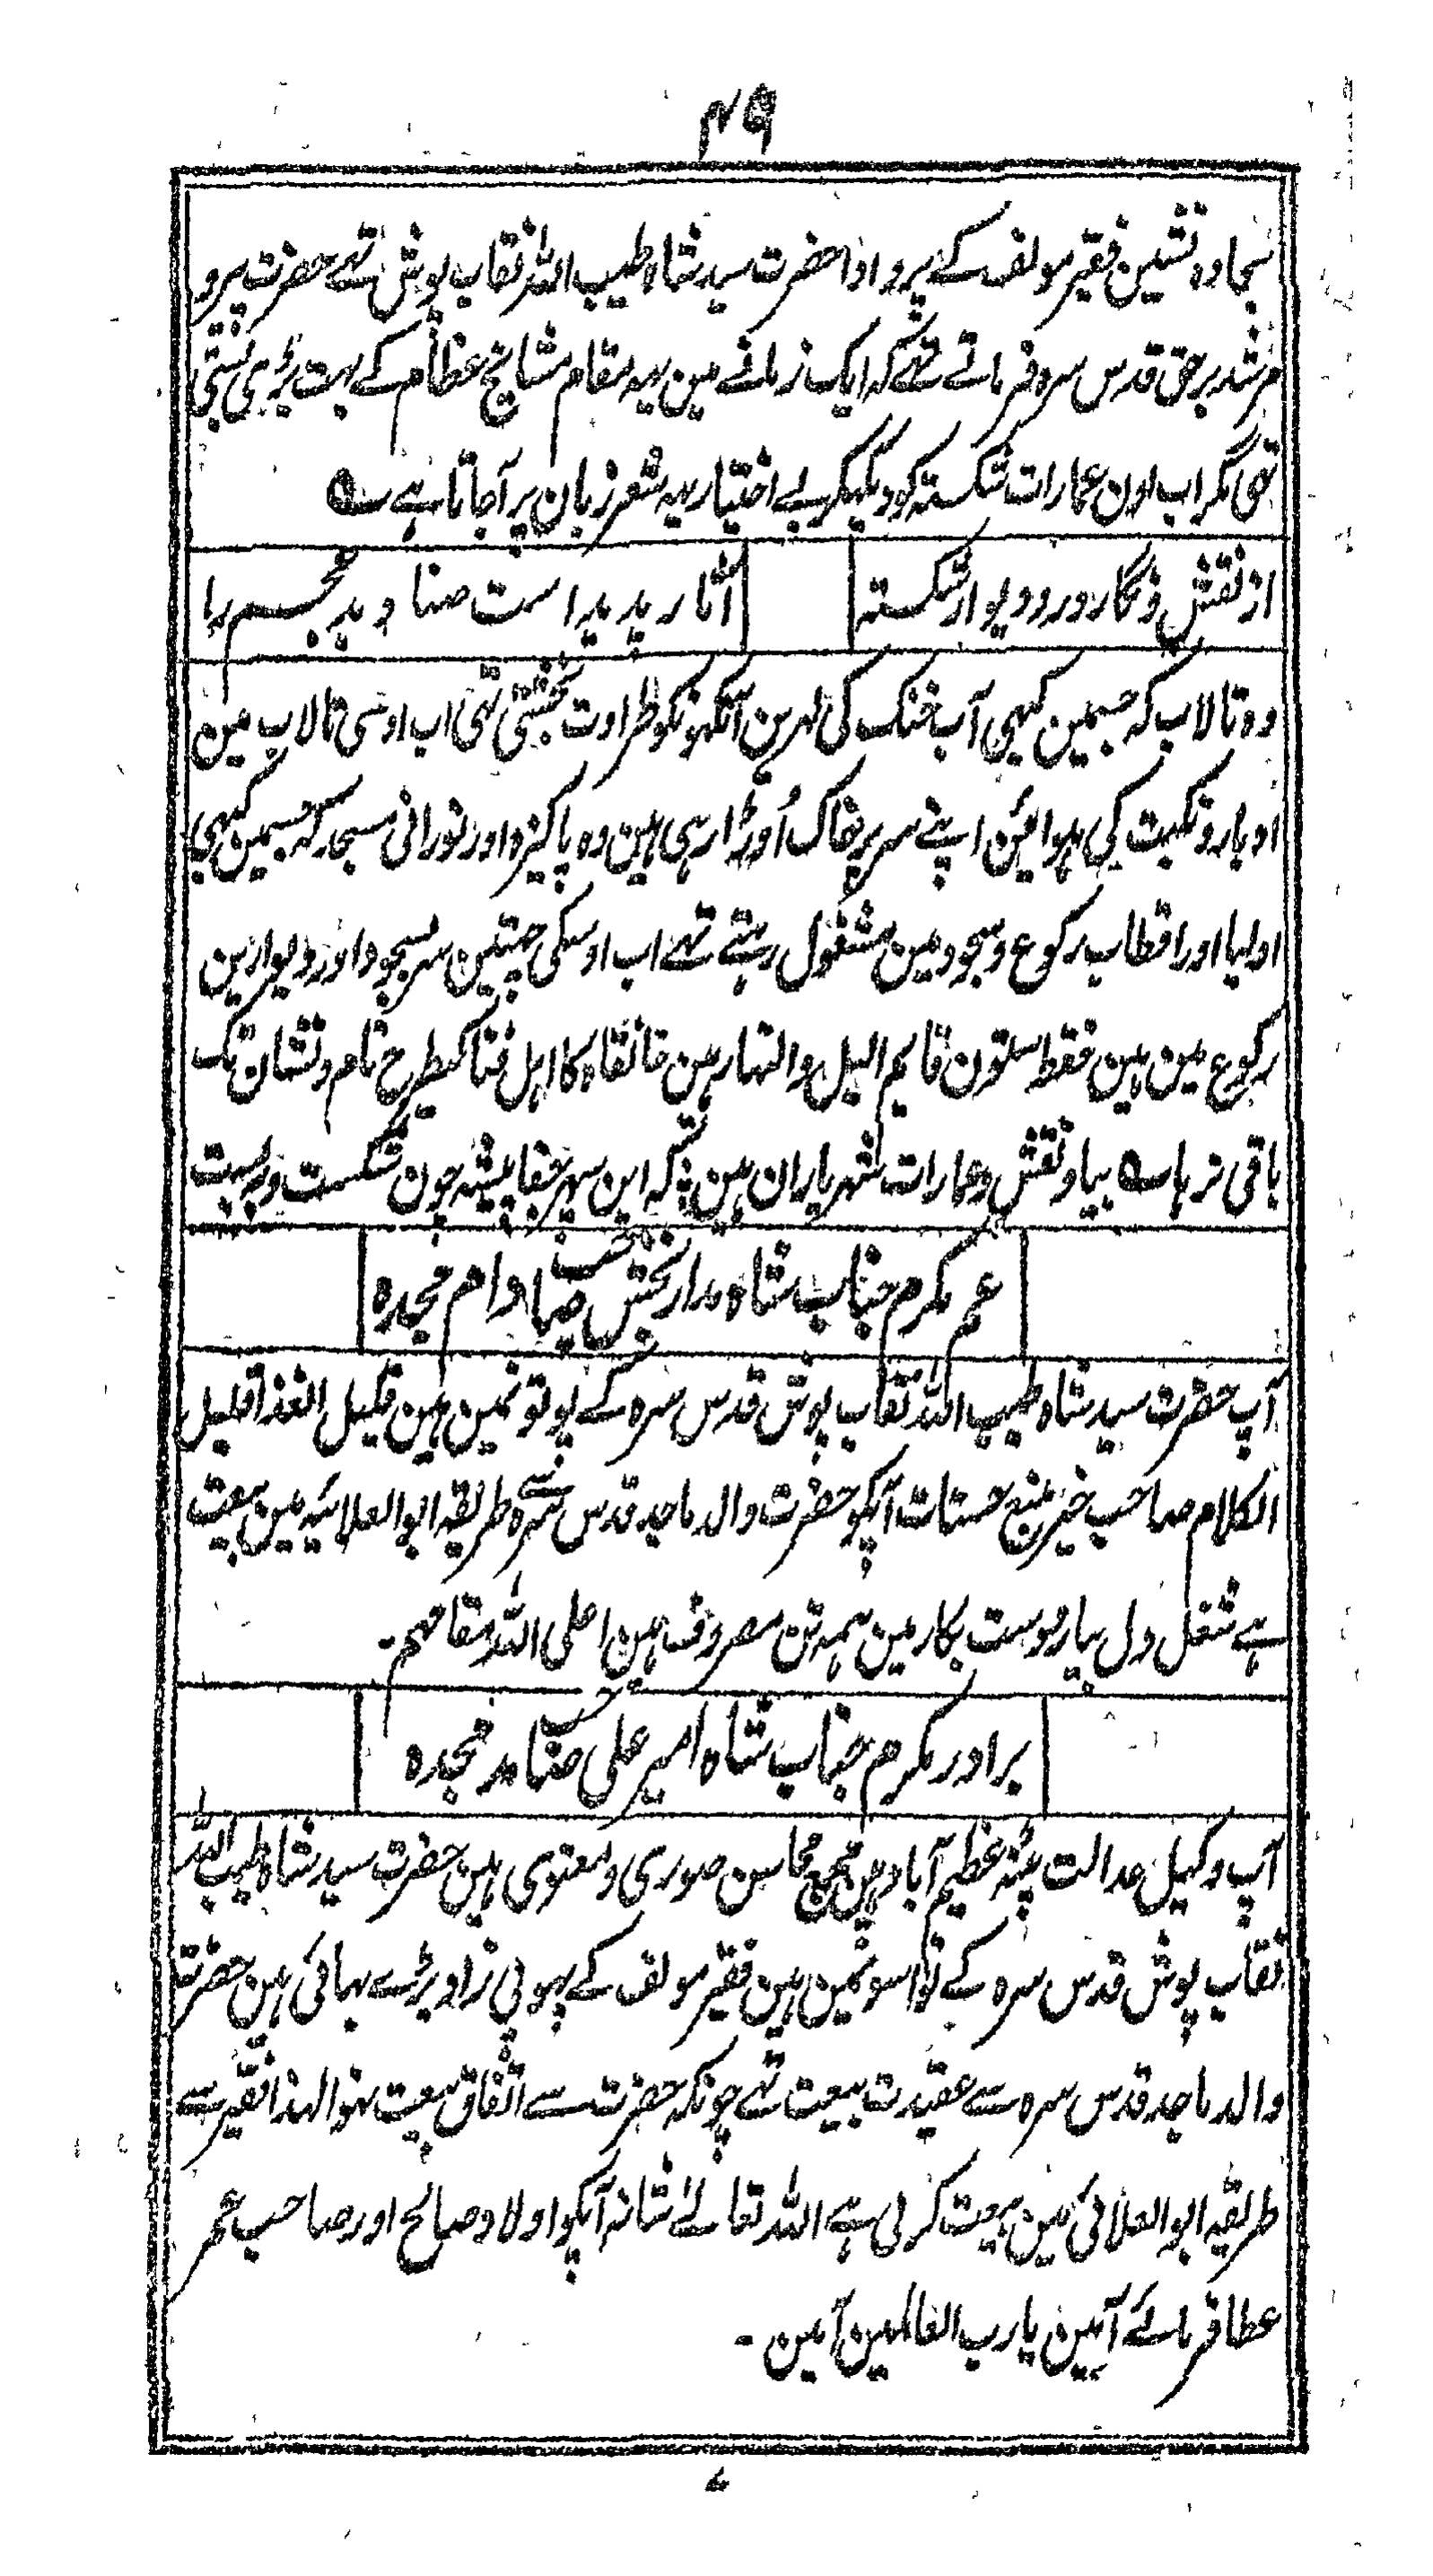 ۴۹
سجادہ نشین فقیر مولف کے پردادا حضرت سید شاہ طیب اللہ نقاب پوش تھے حضرت پیر و
مرشد برحق قدس سرہ فرماتے تھے کہ ایک زمانے مین یہہ مقام مشایخ عظام کے بہت بڑی بستی
تھی مگر اب اون عمارات شکستہ کو دیکھکر بے اختیار یہہ شعر زبان پر آجاتا ہے ؎
از نقش و نگار در و دیوار شکستہ
آثار پدید است صنادید عجم را
وہ تالاب کہ جسمین کبھی آب خنک کی لہرین آنکھونکو طراوت بخشتی تھی اب اوسی تالاب مین
ادبار و نکبت کی ہوائین اپنے سر پر خاک اُوڑا رہی ہین وہ پاکیزہ اور نورانی مسجد کہ جسمین کبھی
اولیا اور اقطاب رکوع و سجود مین مشغول رہتے تھے اب اوسکی چھتین سر بسجود اور دیوارین
رکوع مین ہین فقط ستون قایم الیل و النہار ہین خانقاہ کا اہل فنا کیطرح نام و نشان تک
باقی نرہا ؎ بیا و نقش و عمارات شہریاران بین ؛ کہ این سپہر جفا پیشہ چون شکست و ببست
عم مکرم جناب شاہ مدار بخش صاحب دام مجدہ
آپ حضرت سید شاہ طیب اللہ نقاب پوش قدس سرہ کے پوتونمین ہین قلیل الغذا قلیل
الکلام صاحب خیر منبع حسنات آپکو حضرت والد ماجد قدس سرہ سے طریقہ ابوالعلائیہ مین بیعت
ہے شغل دل بیار و دست بکار مین ہمہ تن مصروف ہین اعلی اللہ مقامہم۔
برادر مکرم جناب شاہ امیر علی صاحب مد مجدہ
آپ وکیل عدالت پٹنہ عظیم آباد ہین مجمع محاسن صوری و معنوی ہین حضرت سید شاہ طیب اللہ
نقاب پوش قدس سرہ کے نواسونمین ہین فقیر مولف کے پھوپی زاد بڑے بھائی ہین حضرت
والد ماجد قدس سرہ سے عقیدت بیعت تھے چونکہ حضرت سے اتفاق بیعت نہوا لہذا فقیر سے
طریقہ ابوالعلائی مین بیعت کر لی ہے اللہ تعالے شانہ آپکو اولاد صالح اور صاحب عمر
عطا فرمائے آمین یا رب العالمین آمین۔